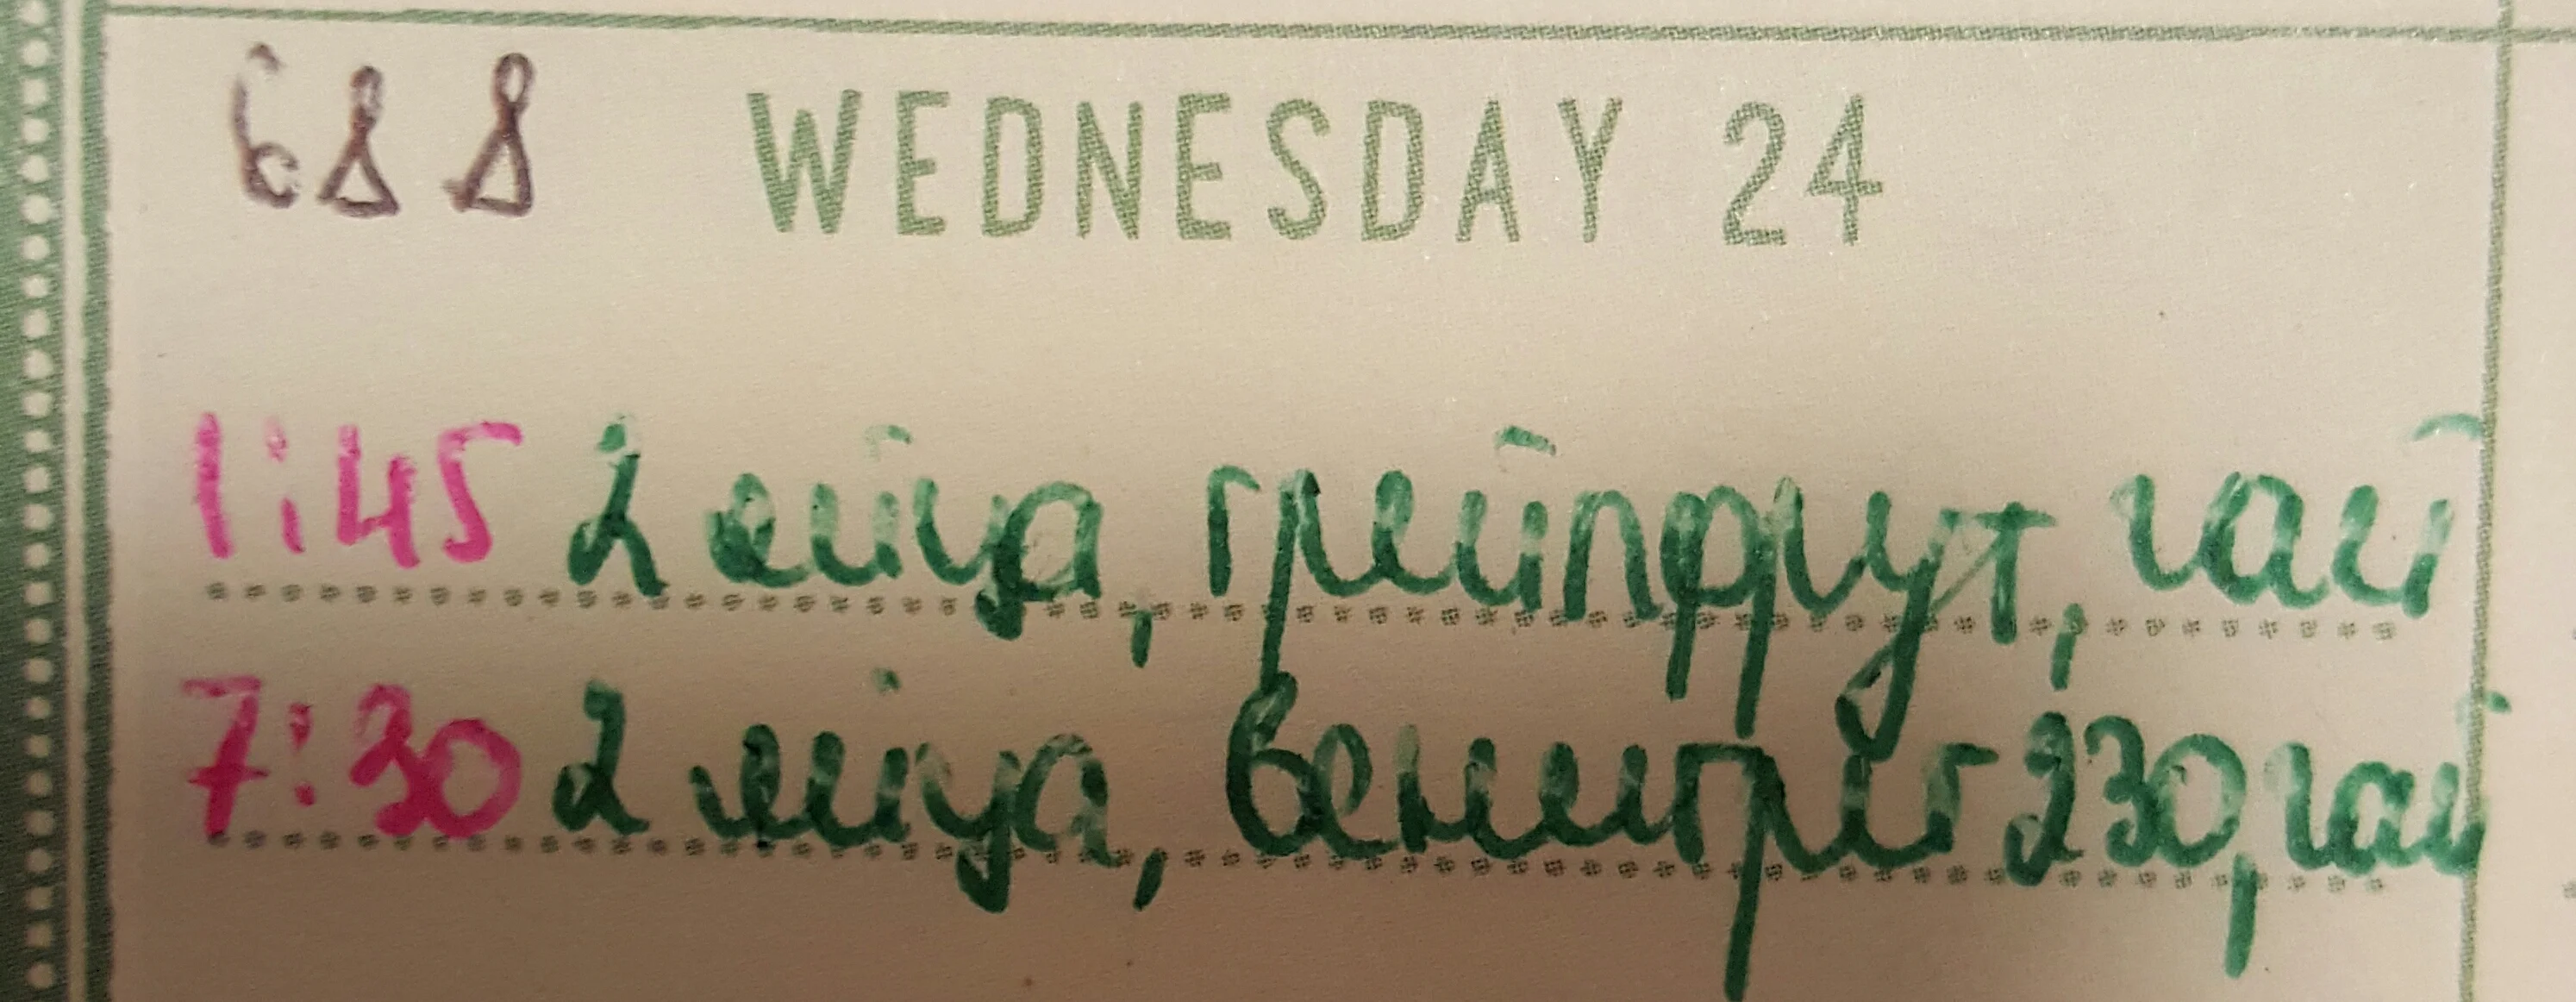 68 8 WEDNESDAY 24
1:45 2 яйца, грейпфрут, чай
7:30 2 яйца, венигрет 230, чай